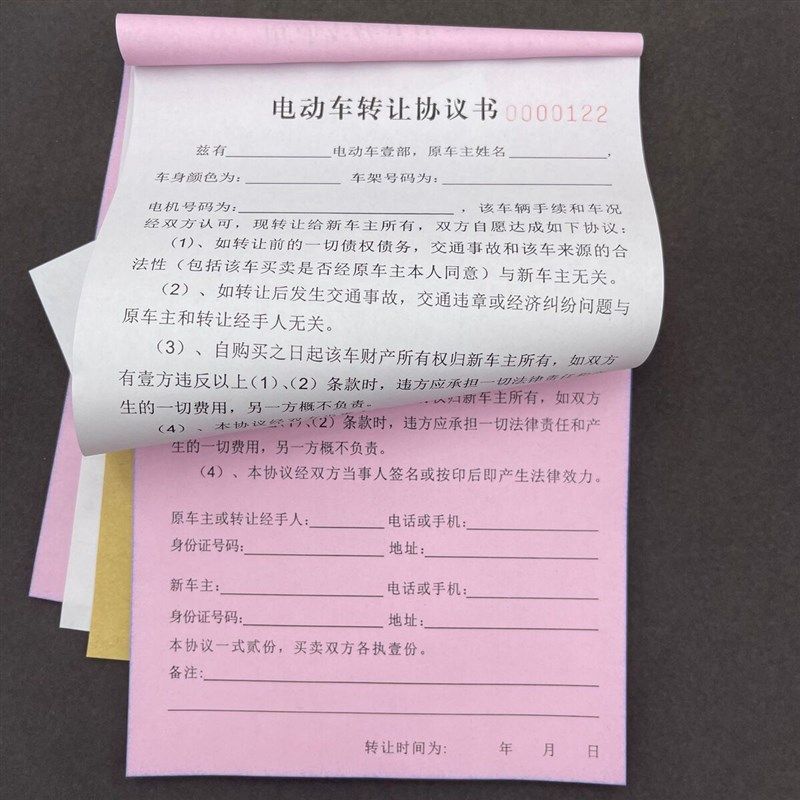 电动车转让协议书 0000122
兹有 电动车壹部，原车主姓名 ，
车身颜色为： 车架号码为：
电机号码为： ，该车辆手续和车况
经双方认可，现转让给新车主所有，双方自愿达成如下协议：
（1）、如转让前的一切债权债务，交通事故和该车来源的合
法性（包括该车买卖是否经原车主本人同意）与新车主无关。
（2）、如转让后发生交通事故，交通违章或经济纠纷问题与
原车主和转让经手人无关。
（3）、自购买之日起该车财产所有权归新车主所有，如双方
有壹方违反以上（1）、（2）条款时，违方应承担一切法律责任和产
生的一切费用，另一方概不负责。
（4）、本协议经
归新车主所有，如双方
（2）条款时，违方应承担一切法律责任和产
生的一切费用，另一方概不负责。
（4）、本协议经双方当事人签名或按印后即产生法律效力。
原车主或转让经手人： 电话或手机：
身份证号码： 地址：
新车主： 电话或手机：
身份证号码： 地址：
本协议一式贰份，买卖双方各执壹份。
备注：
转让时间为： 年 月 日